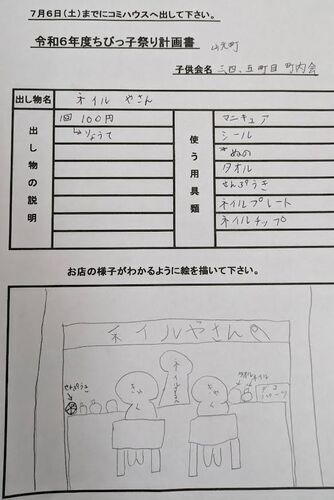 7月6日(土)までにコミハウスへ出して下さい。
令和6年度ちびっ子祭り計画書
山元町
子供会名 三、四、五町目 町内会
出し物名 ネイル やさん
出し物の説明
1回 100円
↳りょうて
使う用具類
マニキュア
シール
*ぬの
タオル
せんぷうき
ネイルプレート
ネイルチップ
お店の様子がわかるように絵を描いて下さい。
ネイルやさん
せんぷうき
きゃく
きゃく
タオル
ネイル
デコパーツ